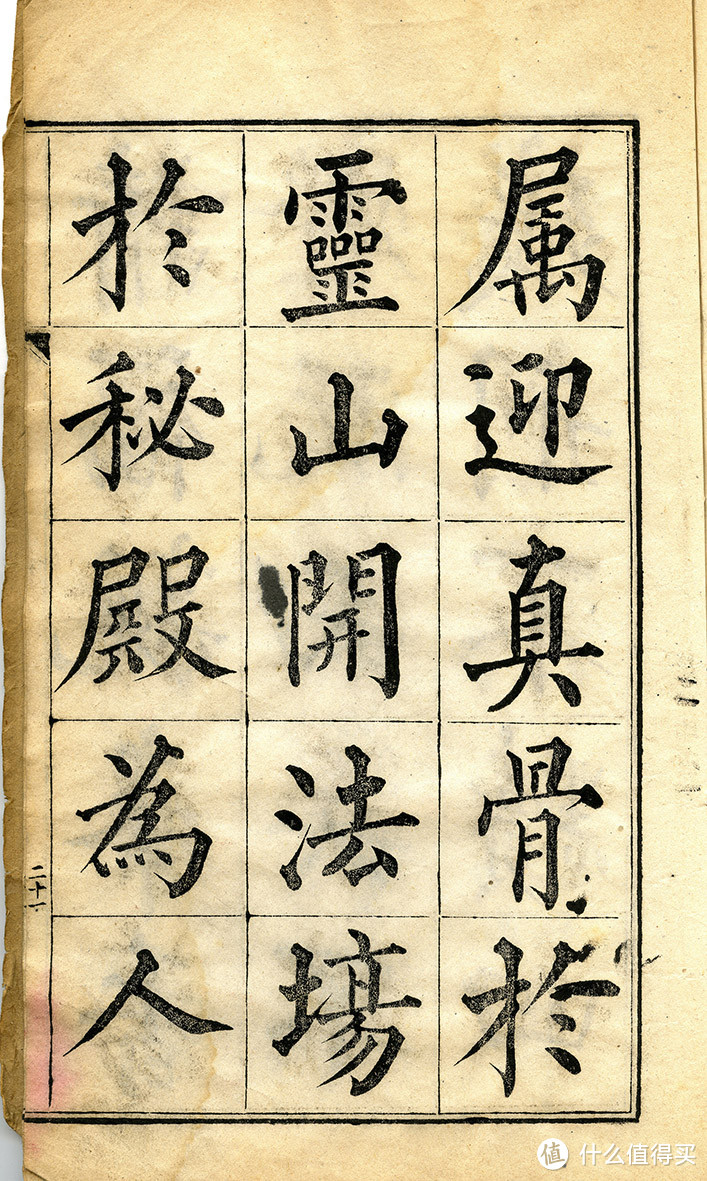 属迎真骨於
靈山開法場
於秘殿為人
二十一
值 什么值得买